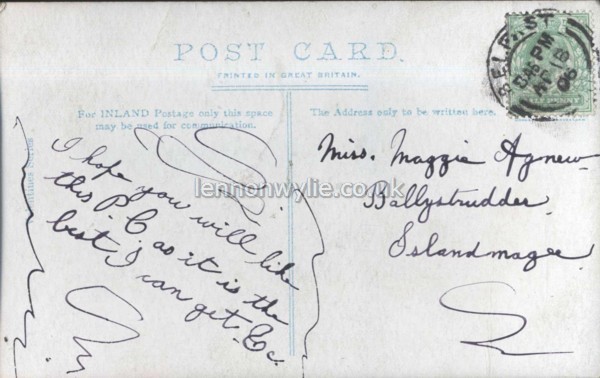 POST CARD.
PRINTED IN GREAT BRITAIN.
For INLAND Postage only this space
may be used for communication.
The Address only to be written here.
BELFAST
5.45 PM
AP 15
06
I hope you will like
this P.C as it is the
best I can get. &c.
Miss. Maggie Agnew
Ballystrudder
Islandmagee
lennonwylie.co.uk